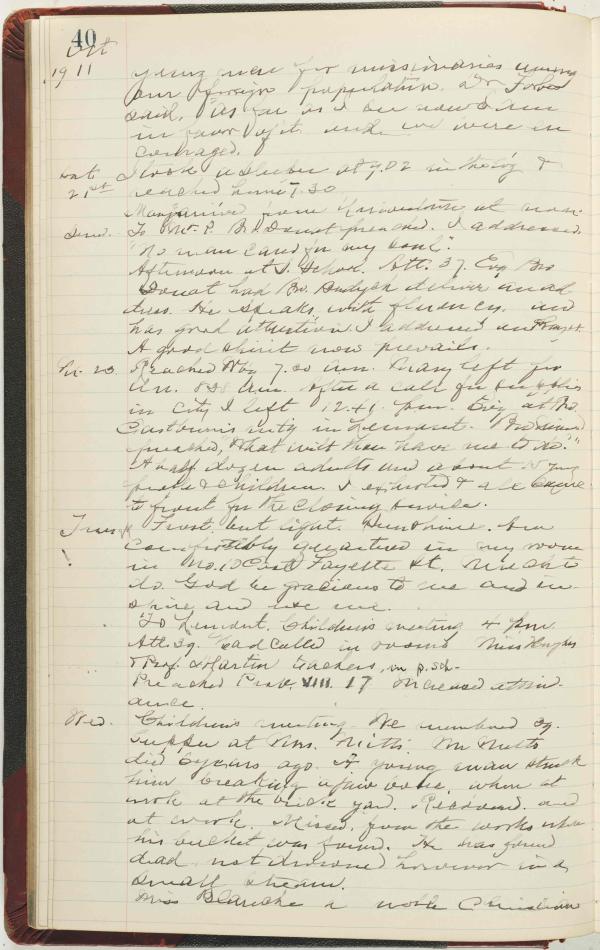 40
Oct
1911
young men for missionaries among
our foreign population. Dr Forbes
said, "as far as I can now I am
in favor of it and we were en
couraged.
Sat. I took a sleeper at 9.02 in the &
21st reached home 7.30
Mary arrived from at noon.
Sund. To Mt. P. Bro Donat preached. I addressed.
"No man cared for my soul".
Afternoon at S. School Att. 37. Eve Bro
Donat had Bro. deliver an ad
dress. He speaks with fluency. and
has good attention. I addressed and prayed.
A good spirit now prevails.
23. Reached 7.20 a.m. Mary left for
8 a.m. After a call for supplies
in city I left 12.41 p.m. Eve at Bro.
in Lemont. Bro
preached, "What wilt thou have me to do."
A half dozen adults and about 25 young
people & children. I exhorted & all came
to front for the closing service.
Tues. Frost but light. Sunshine. Am
comfortably quartered in my room
in No. 10 East Fayette St. Much to
do. God be gracious to me and in-
spire and use me.
To Lemont. Children's meeting 4 p.m.
Att. 39. Had called in rooms Miss Hughes
& Prof. Martin teachers, in p. sch.
Preached Prov. VIII. 17 Increased attend-
ance.
Wed. Children's meeting. We numbered 39.
Supper at Mrs. Mitts. Mr Mitts
died 6 years ago. A young man struck
him breaking a jaw bone, when at
work at the brick yard. Recovered and
at work. Missed, from the works when
his bucket was found. He was found
dead not drowned however in a
small stream.
Miss Blanche a noble Christian